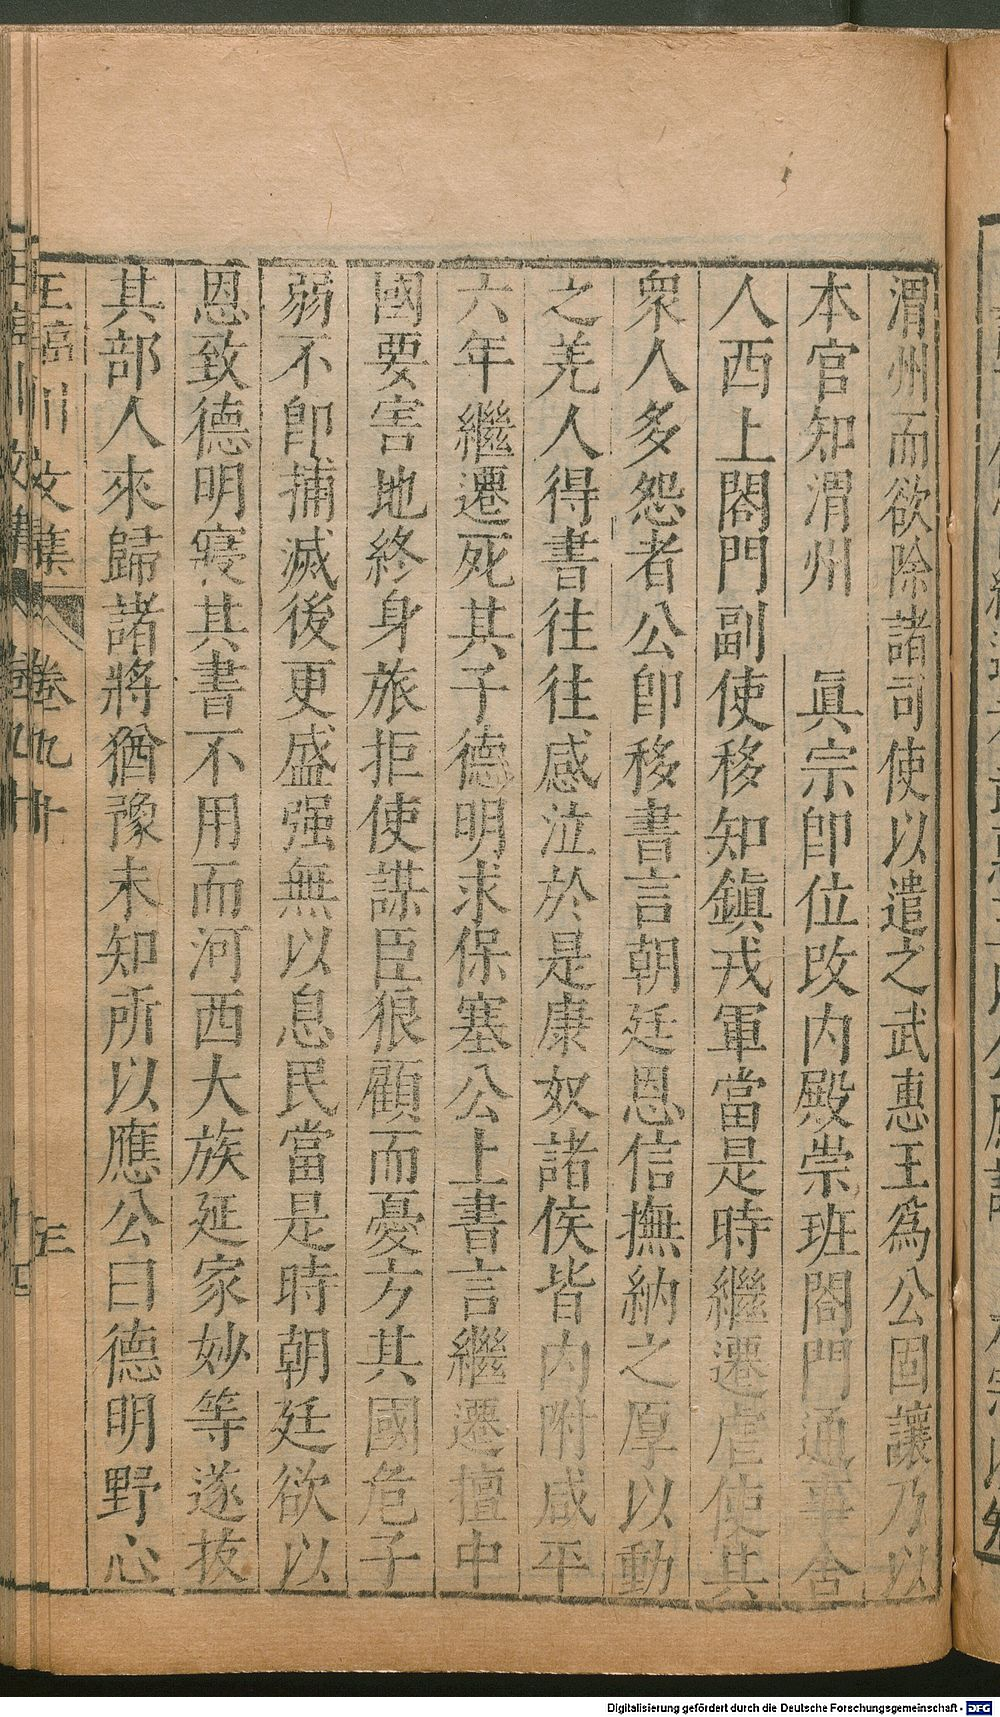 渭州而欲除諸司使以遣之武惠王爲公固讓乃以
本官知渭州 眞宗卽位改内殿崇班閤門通事舍
人西上閤門副使移知鎮戎軍當是時繼遷虐使其
衆人多怨者公卽移書言朝廷恩信撫納之厚以動
之羌人得書往往感泣於是康奴諸侯皆内附咸平
六年繼遷死其子德明求保塞公上書言繼遷擅中
國要害地終身旅拒使謀臣狼顧而憂方其國危子
弱不卽捕滅後更盛强無以息民當是時朝廷欲以
恩致德明寢其書不用而河西大族延家妙等遂拔
其部人來歸諸將猶豫未知所以應公曰德明野心
王臨川文集 卷九十
Digitalisierung gefördert durch die Deutsche Forschungsgemeinschaft - DFG